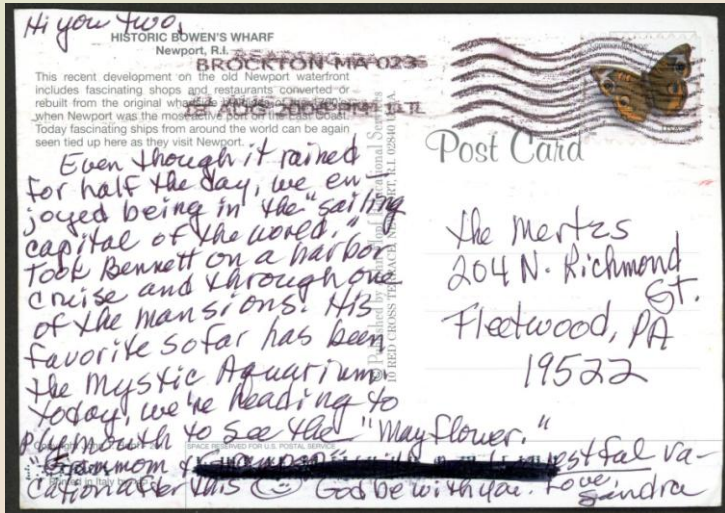 Hi you two,
HISTORIC BOWEN'S WHARF
Newport, R.I.
This recent development on the old Newport waterfront
includes fascinating shops and restaurants converted or
rebuilt from the original
when Newport was the most active port on the East Coast.
Today fascinating ships from around the world can be again
seen tied up here as they visit Newport.
BROCKTON MA 023
Post Card
Even though it rained
for half the day, we en-
joyed being in the "sailing
capital of the world."
Took Bennett on a harbor
cruise and through one
of the mansions. His
favorite so far has been
the Mystic Aquarium.
Today, we're heading to
Plymouth to see the "Mayflower."
"Grammom &
estful va-
cation after this God be with you. Love,
Sandra
SPACE RESERVED FOR U.S. POSTAL SERVICE
Printed in Italy
© Published by
10 RED CROSS TERRACE, NEWPORT, R.I. 02840 U.S.A.
The Mertzs
204 N. Richmond
St.
Fleetwood, PA
19522